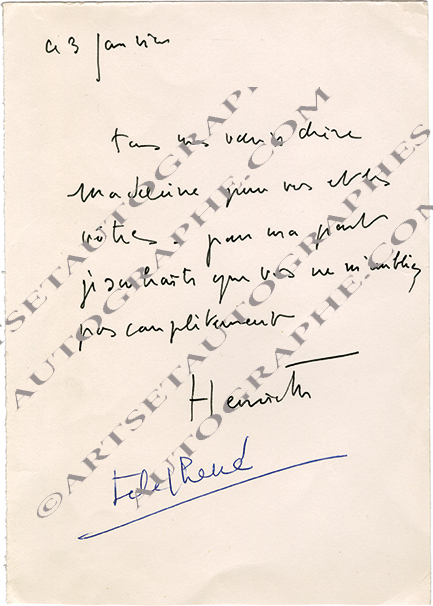 ce 3 janvier
tous mes vœux chère
Madeleine pour vous et les
vôtres. pour ma part
je souhaite que vous ne m'oubliez
pas complètement
Henriette
©ARTSETAUTOGRAPHES.COM
AUTOGRAPHE.COM